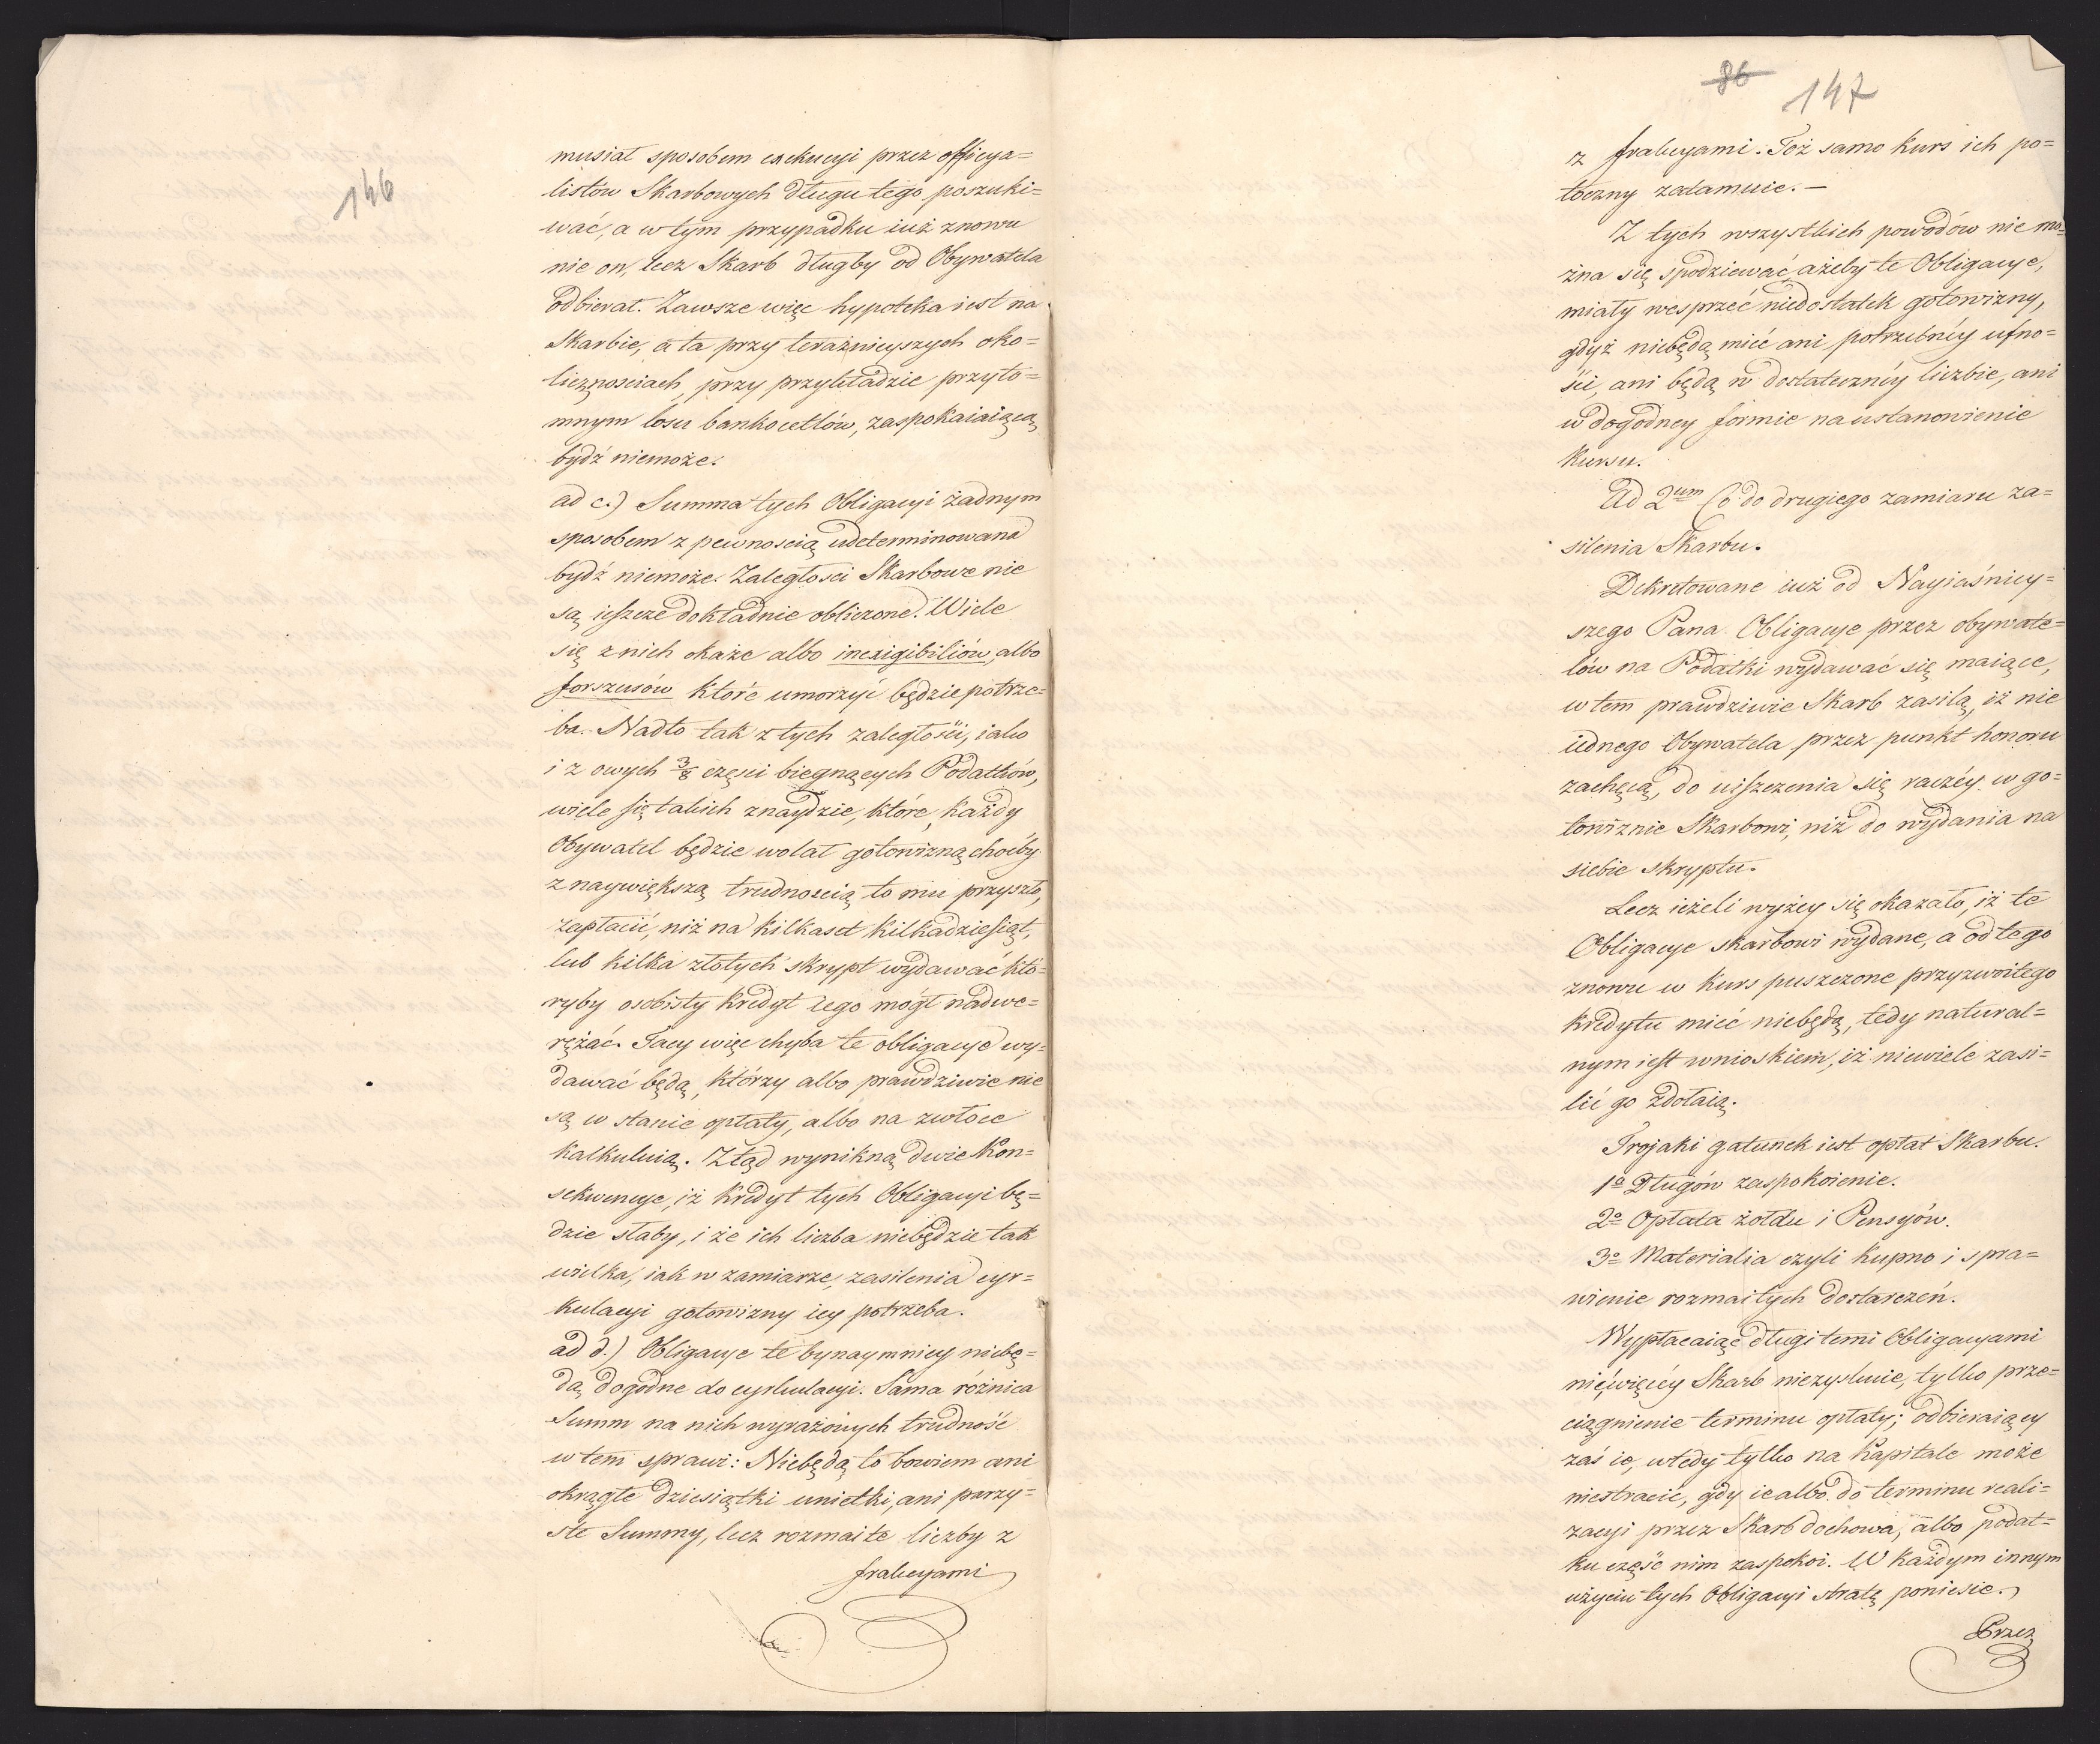 146
musiał sposobem exekucyi przez officya=
listów Skarbowych długu tego poszuki=
wać, a w tym przypadku iuż znowu
nie on, lecz Skarb długby od Obywatela
odbierał. Zawsze więc hypoteka iest na
Skarbie, a ta przy teraźnieyszych oko=
licznosciach, przy przykładzie przyto=
mnym losu bankocetlów, zaspokaiaiącą
bydź niemoże.
ad c.) Summa tych Obligacyi żadnym
sposobem z pewnoscią udeterminowana
bydź niemoże. Zaległosci Skarbowe nie
są ieszcze dokładnie obliczone. Wiele
się z nich okaże albo inexigibiliów, albo
forszusów które umorzyć będzie potrze=
ba. Nadto tak z tych zaległości, iako
i z owych 3/8 częsci biegnących Podatków,
wiele się takich znaydzie, które, każdy
Obywatel będzie wolał gotowizną choćby
z naywiększą trudnoscią to mu przyszło,
zapłacić, niż na kilkaset kilkadziesiąt,
lub kilka złotych skrypt wydawać któ=
ryby osobisty kredyt iego mógł nadwe=
rężać. Tacy więc chyba te obligacye wy=
dawać będą, którzy albo prawdziwie nie
są w stanie opłaty, albo na zwłoce
kalkuluią. Ztąd wynikną dwie Kon=
sekwencye, iż kredyt tych Obligacyi bę=
dzie słaby, i że ich liczba niebędzie tak
wielka, iak w zamiarze, zasilenia cyr=
kulacyi gotowizny iey potrzeba.
ad d.) Obligacye te bynaymniey niebę=
dą dogodne do cyrkulacyi. Sama różnica
Summ na nich wyrażonych trudność
w tem sprawi: Niebędą to bowiem ani
okrągłe dziesiątki unietki, ani parzy=
ste Summy, lecz rozmaite liczby z
frakcyami
86 147
z frakcyami. Toż samo kurs ich po=
toczny zatamuie. —
Z tych wszystkich powodów nie mo=
żna się spodziewać, ażeby te Obligacye,
miały wesprzeć niedostatek gotowizny,
gdyż niebędą mieć ani potrzebnéy ufno=
ści, ani będą w dostatecznéy liczbie, ani
w dogodney formie na ustanowienie
Kursu.
Ad 2um Co do drugiego zamiaru za=
silenia Skarbu.
Dekretowane iuż od Nayiaśniey=
szego Pana Obligacye przez obywate=
lów na Podatki wydawać się maiące,
w tem prawdziwie Skarb zasilą, iż nie
iednego Obywatela przez punkt honoru
zachęcą, do uiszczenia się raczéy w go=
towiznie Skarbowi, niż do wydania na
siebie skryptu.
Lecz ieżeli wyżey się okazało, iż te
Obligacye skarbowi wydane, a od tego
znowu w kurs puszczone przyzwoitego
kredytu mieć niebędą, tedy natural=
nym iest wnioskiem, iż niewiele zasi=
lić go zdołaią.
Trojaki gatunek iest opłat Skarbu.
1o Długów zaspokoienie.
2o Opłata żołdu i Pensyów.
3o Materialia czyli kupno i spra=
wienie rozmaitych dostarczeń.
Wypłacaiąc długi temi Obligacyami
nicwięcéy Skarb niezyskuie, tylko prze=
ciągnienie terminu opłaty; odbieraiący
zaś ie, wtedy tylko na Kapitale może
niestracić, gdy ie albo do terminu reali=
zacyi przez Skarb dochowa, albo podat=
ku część nim zaspokoi. W każdym innym
użyciu tych Obligacyi stratę poniesie.
Przez